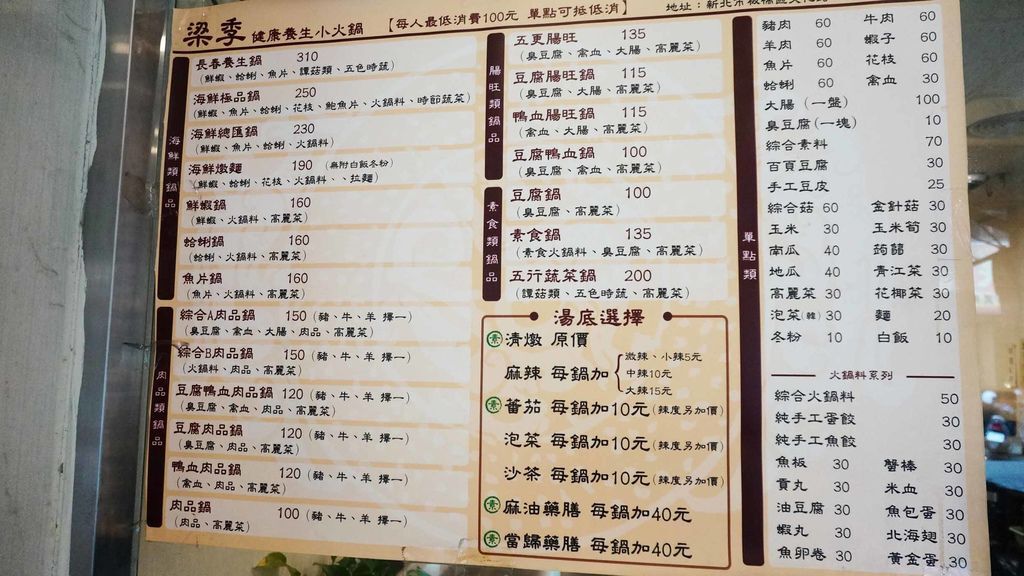 梁季 健康養生小火鍋 【每人最低消費100元 單點可抵低消】
海鮮類鍋品
長春養生鍋 310
(鮮蝦、蛤蜊、魚片、譚菇類、五色時蔬)
海鮮極品鍋 250
(鮮蝦、魚片、蛤蜊、花枝、鮑魚片、火鍋料、時節蔬菜)
海鮮總匯鍋 230
(鮮蝦、魚片、蛤蜊、火鍋料)
海鮮燉麵 190 (無附白飯冬粉)
(鮮蝦、蛤蜊、花枝、火鍋料、、拉麵)
鮮蝦鍋 160
(鮮蝦、火鍋料、高麗菜)
蛤蜊鍋 160
(蛤蜊、火鍋料、高麗菜)
魚片鍋 160
(魚片、火鍋料、高麗菜)
肉品類鍋品
綜合A肉品鍋 150 (豬、牛、羊 擇一)
(臭豆腐、禽血、大腸、肉品、高麗菜)
綜合B肉品鍋 150 (豬、牛、羊 擇一)
(火鍋料、肉品、高麗菜)
豆腐鴨血肉品鍋 120 (豬、牛、羊 擇一)
(臭豆腐、禽血、肉品、高麗菜)
豆腐肉品鍋 120 (豬、牛、羊 擇一)
(臭豆腐、肉品、高麗菜)
鴨血肉品鍋 120 (豬、牛、羊 擇一)
(禽血、肉品、高麗菜)
肉品鍋 100 (豬、牛、羊 擇一)
(肉品、高麗菜)
腸旺類鍋品
五更腸旺 135
(臭豆腐、禽血、大腸、高麗菜)
豆腐腸旺鍋 115
(臭豆腐、大腸、高麗菜)
鴨血腸旺鍋 115
(禽血、大腸、高麗菜)
豆腐鴨血鍋 100
(臭豆腐、禽血、高麗菜)
素食類鍋品
豆腐鍋 100
(臭豆腐、高麗菜)
素食鍋 135
(素食火鍋料、臭豆腐、高麗菜)
五行蔬菜鍋 200
(譚菇類、五色時蔬、高麗菜)
湯底選擇
素 清燉 原價
麻辣 每鍋加
微辣、小辣5元
中辣10元
大辣15元
素 蕃茄 每鍋加10元 (辣度另加價)
泡菜 每鍋加10元 (辣度另加價)
沙茶 每鍋加10元 (辣度另加價)
素 麻油藥膳 每鍋加40元
素 當歸藥膳 每鍋加40元
單點類
豬肉 60 牛肉 60
羊肉 60 蝦子 60
魚片 60 花枝 60
蛤蜊 60 禽血 30
大腸 (一盤) 100
臭豆腐 (一塊) 10
綜合素料 70
百頁豆腐 30
手工豆皮 25
綜合菇 60 金針菇 30
玉米 30 玉米筍 30
南瓜 40 蒟蒻 30
地瓜 40 青江菜 30
高麗菜 30 花椰菜 30
泡菜(韓) 30 麵 20
冬粉 10 白飯 10
火鍋料系列
綜合火鍋料 50
純手工蛋餃 30
純手工魚餃 30
魚板 30 蟹棒 30
貢丸 30 米血 30
油豆腐 30 魚包蛋 30
蝦丸 30 北海翅 30
魚卵卷 30 黃金蛋 30